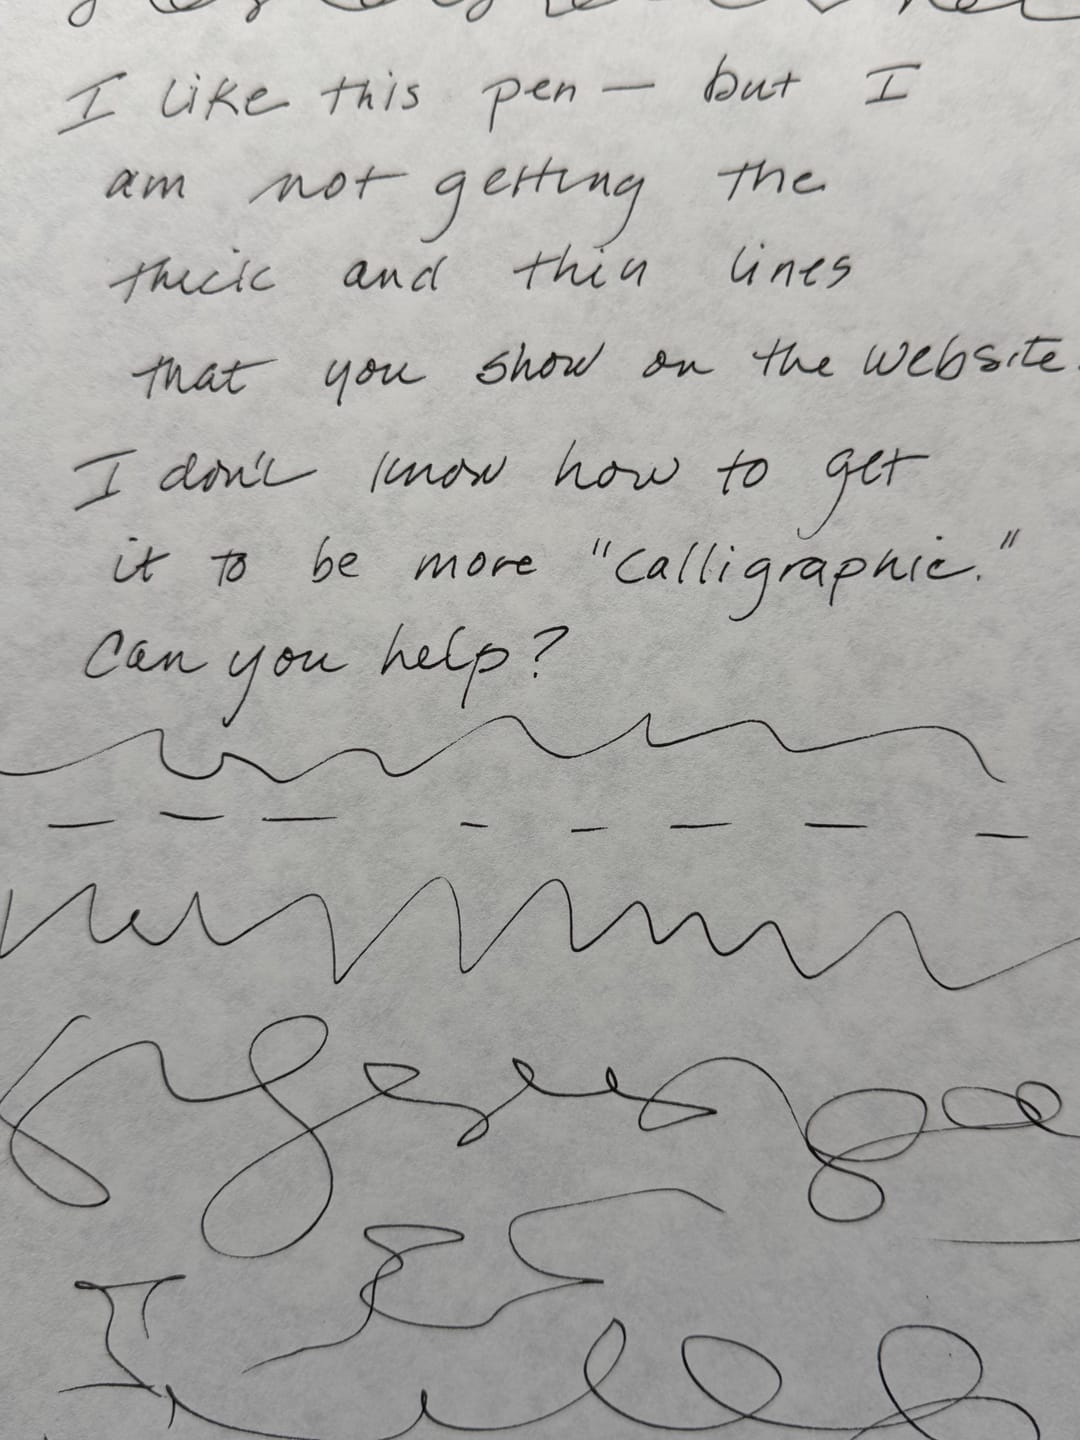 I like this pen — but I
am not getting the
thick and thin lines
that you show on the website.
I don't know how to get
it to be more "calligraphic."
Can you help?